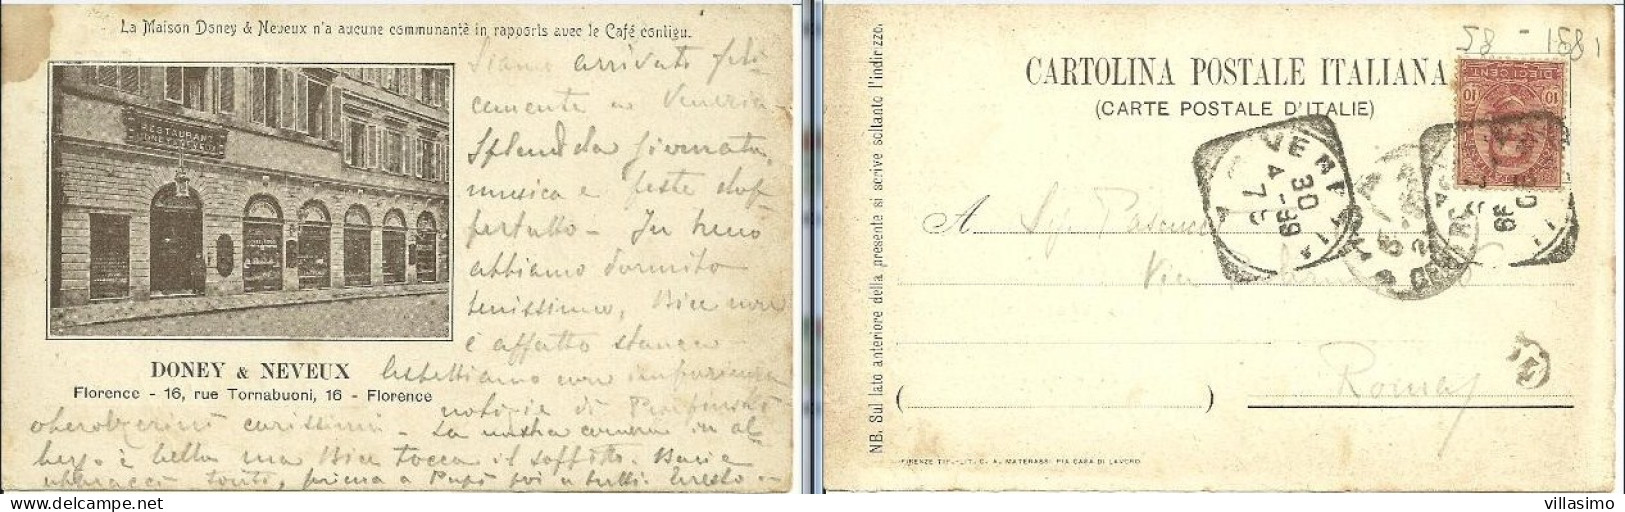 La Maison Doney & Neveux n'a aucune communanté in rapports avec le Café contigu.
RESTAURANT
DONEY & NEVEUX
Siamo arrivati feli-
cemente a Venezia -
Splendida giornata,
musica e feste dap-
pertutto - In treno
abbiamo dormito
benissimo, Bice non
è affatto stanca -
DONEY & NEVEUX
Florence - 16, rue Tornabuoni, 16 - Florence
Aspettiamo con impazienza
notizie di
carissimi - La nostra camera in al
bergo è bella ma Bice tocca il soffitto. Baci e
abbracci tanti, prima a Papà poi a tutti. Ernesto -
NB. Sul lato anteriore della presente si scrive soltanto l'indirizzo.
58 - 1581
CARTOLINA POSTALE ITALIANA
(CARTE POSTALE D'ITALIE)
DIECI CENT
10 10
30
4-99
7 S
A Sig. Pascucci
Via
Roma
FIRENZE TIP.-LIT. C. A. MATERASSI PIA CASA DI LAVORO
villasimo
www.delcampe.net